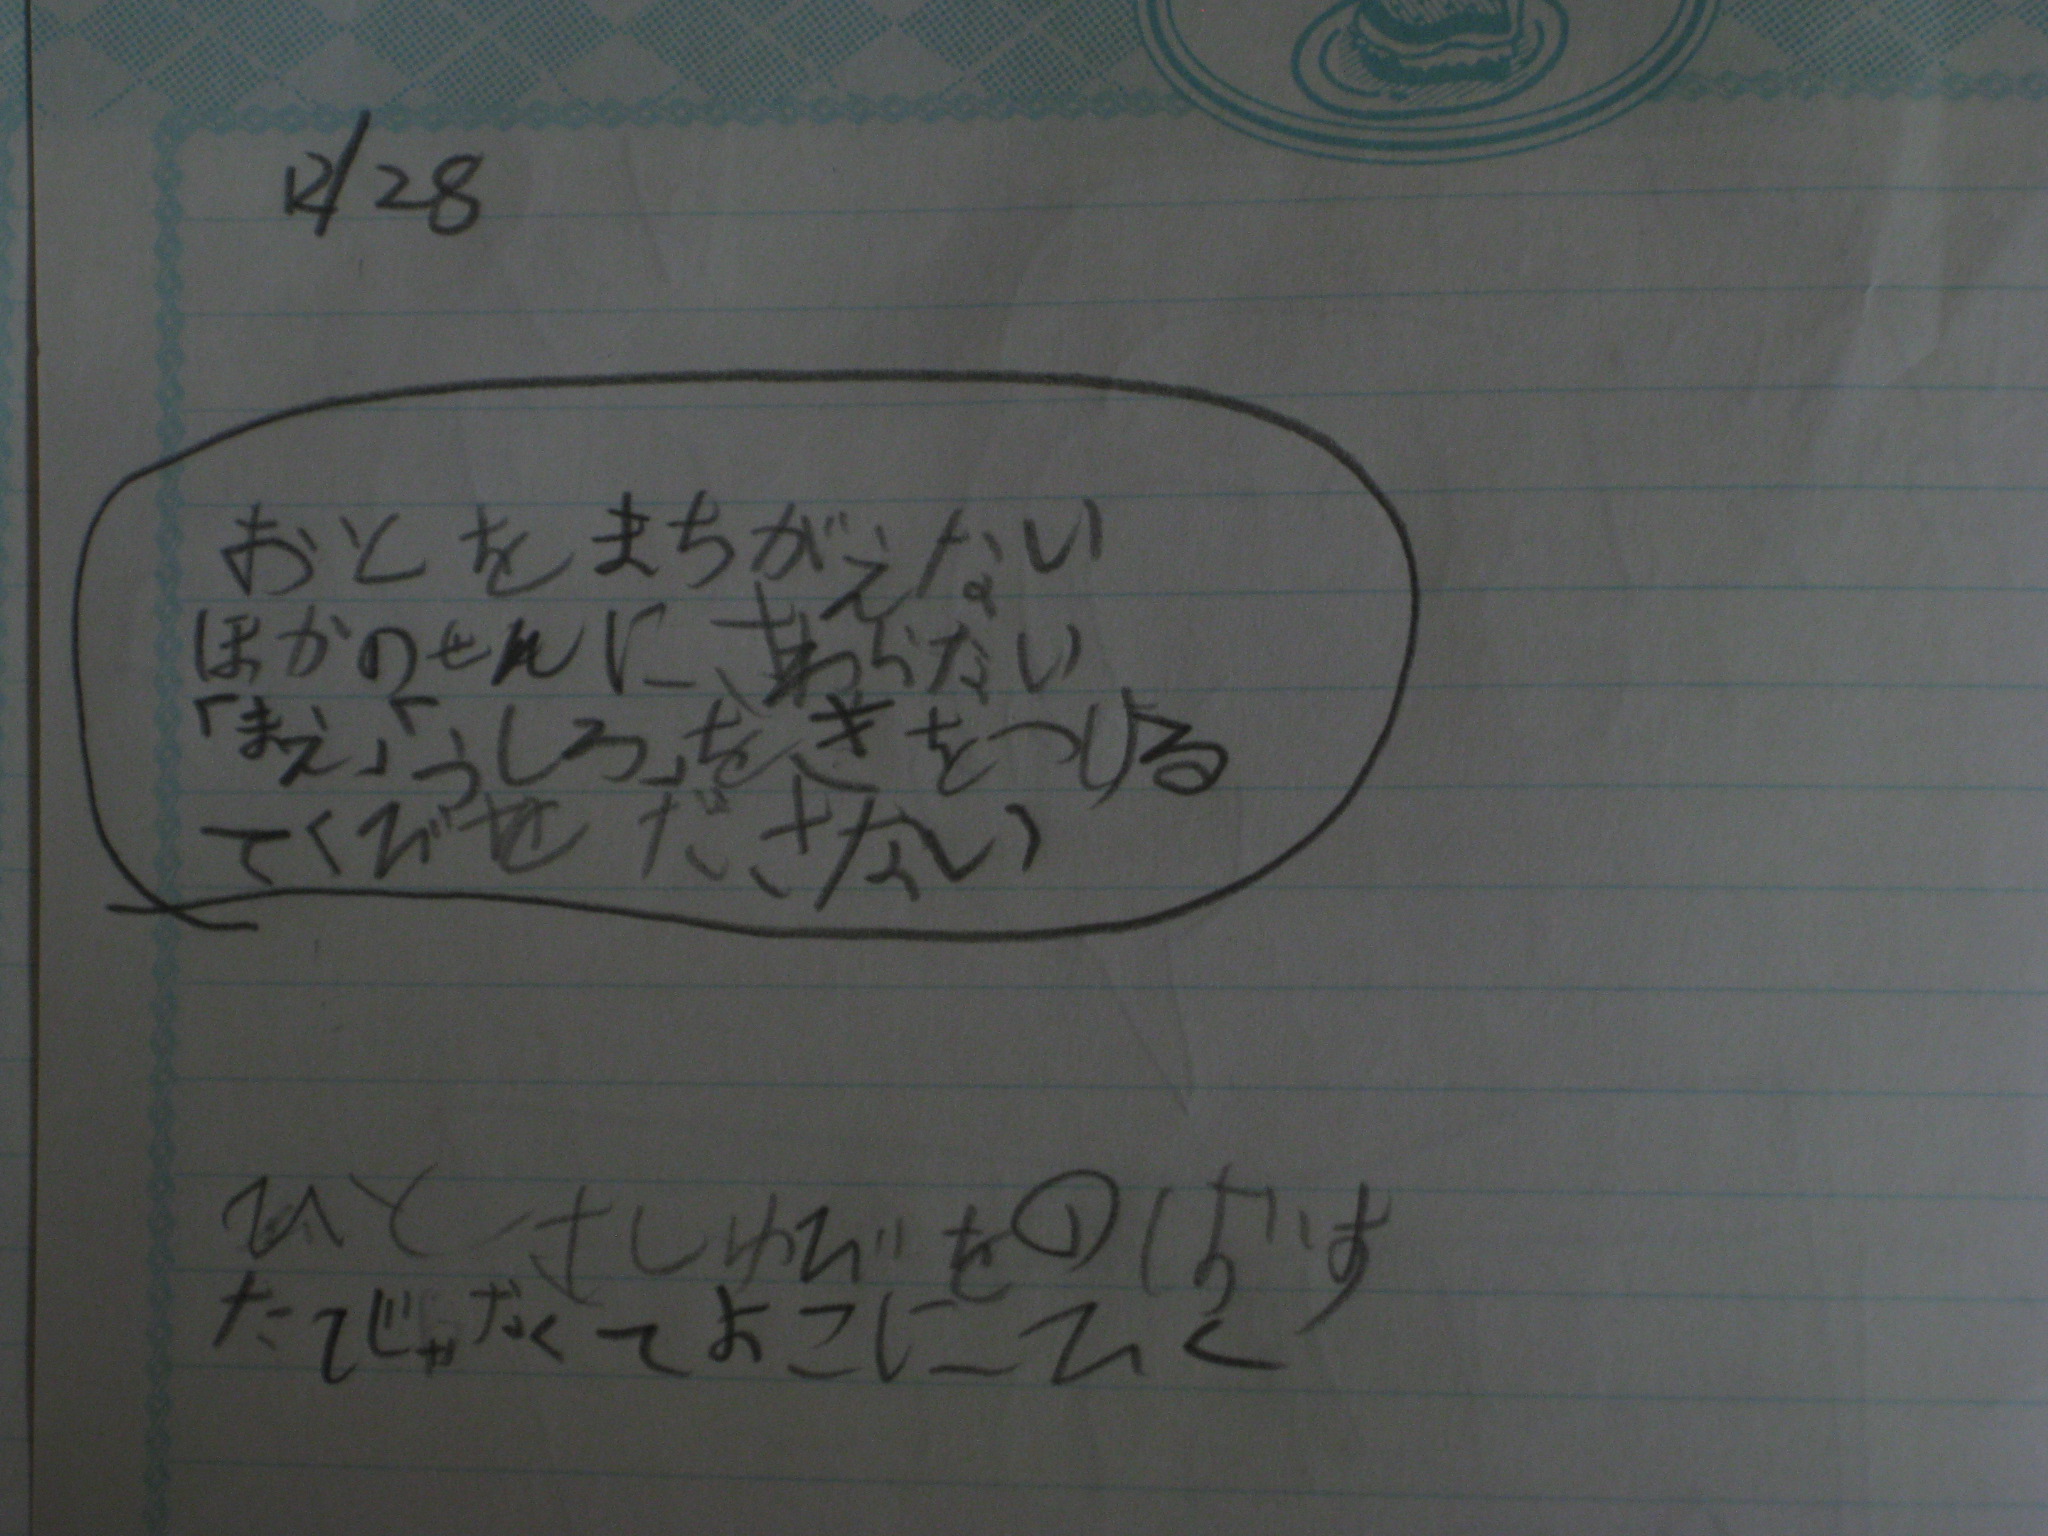 12/28
おとをまちがえない
ほかのせんにさわらない
「まえ」「うしろ」をきをつける
てくびせ ださない
ひとさしゆびをのばす
たてじゃなくてよこにひく